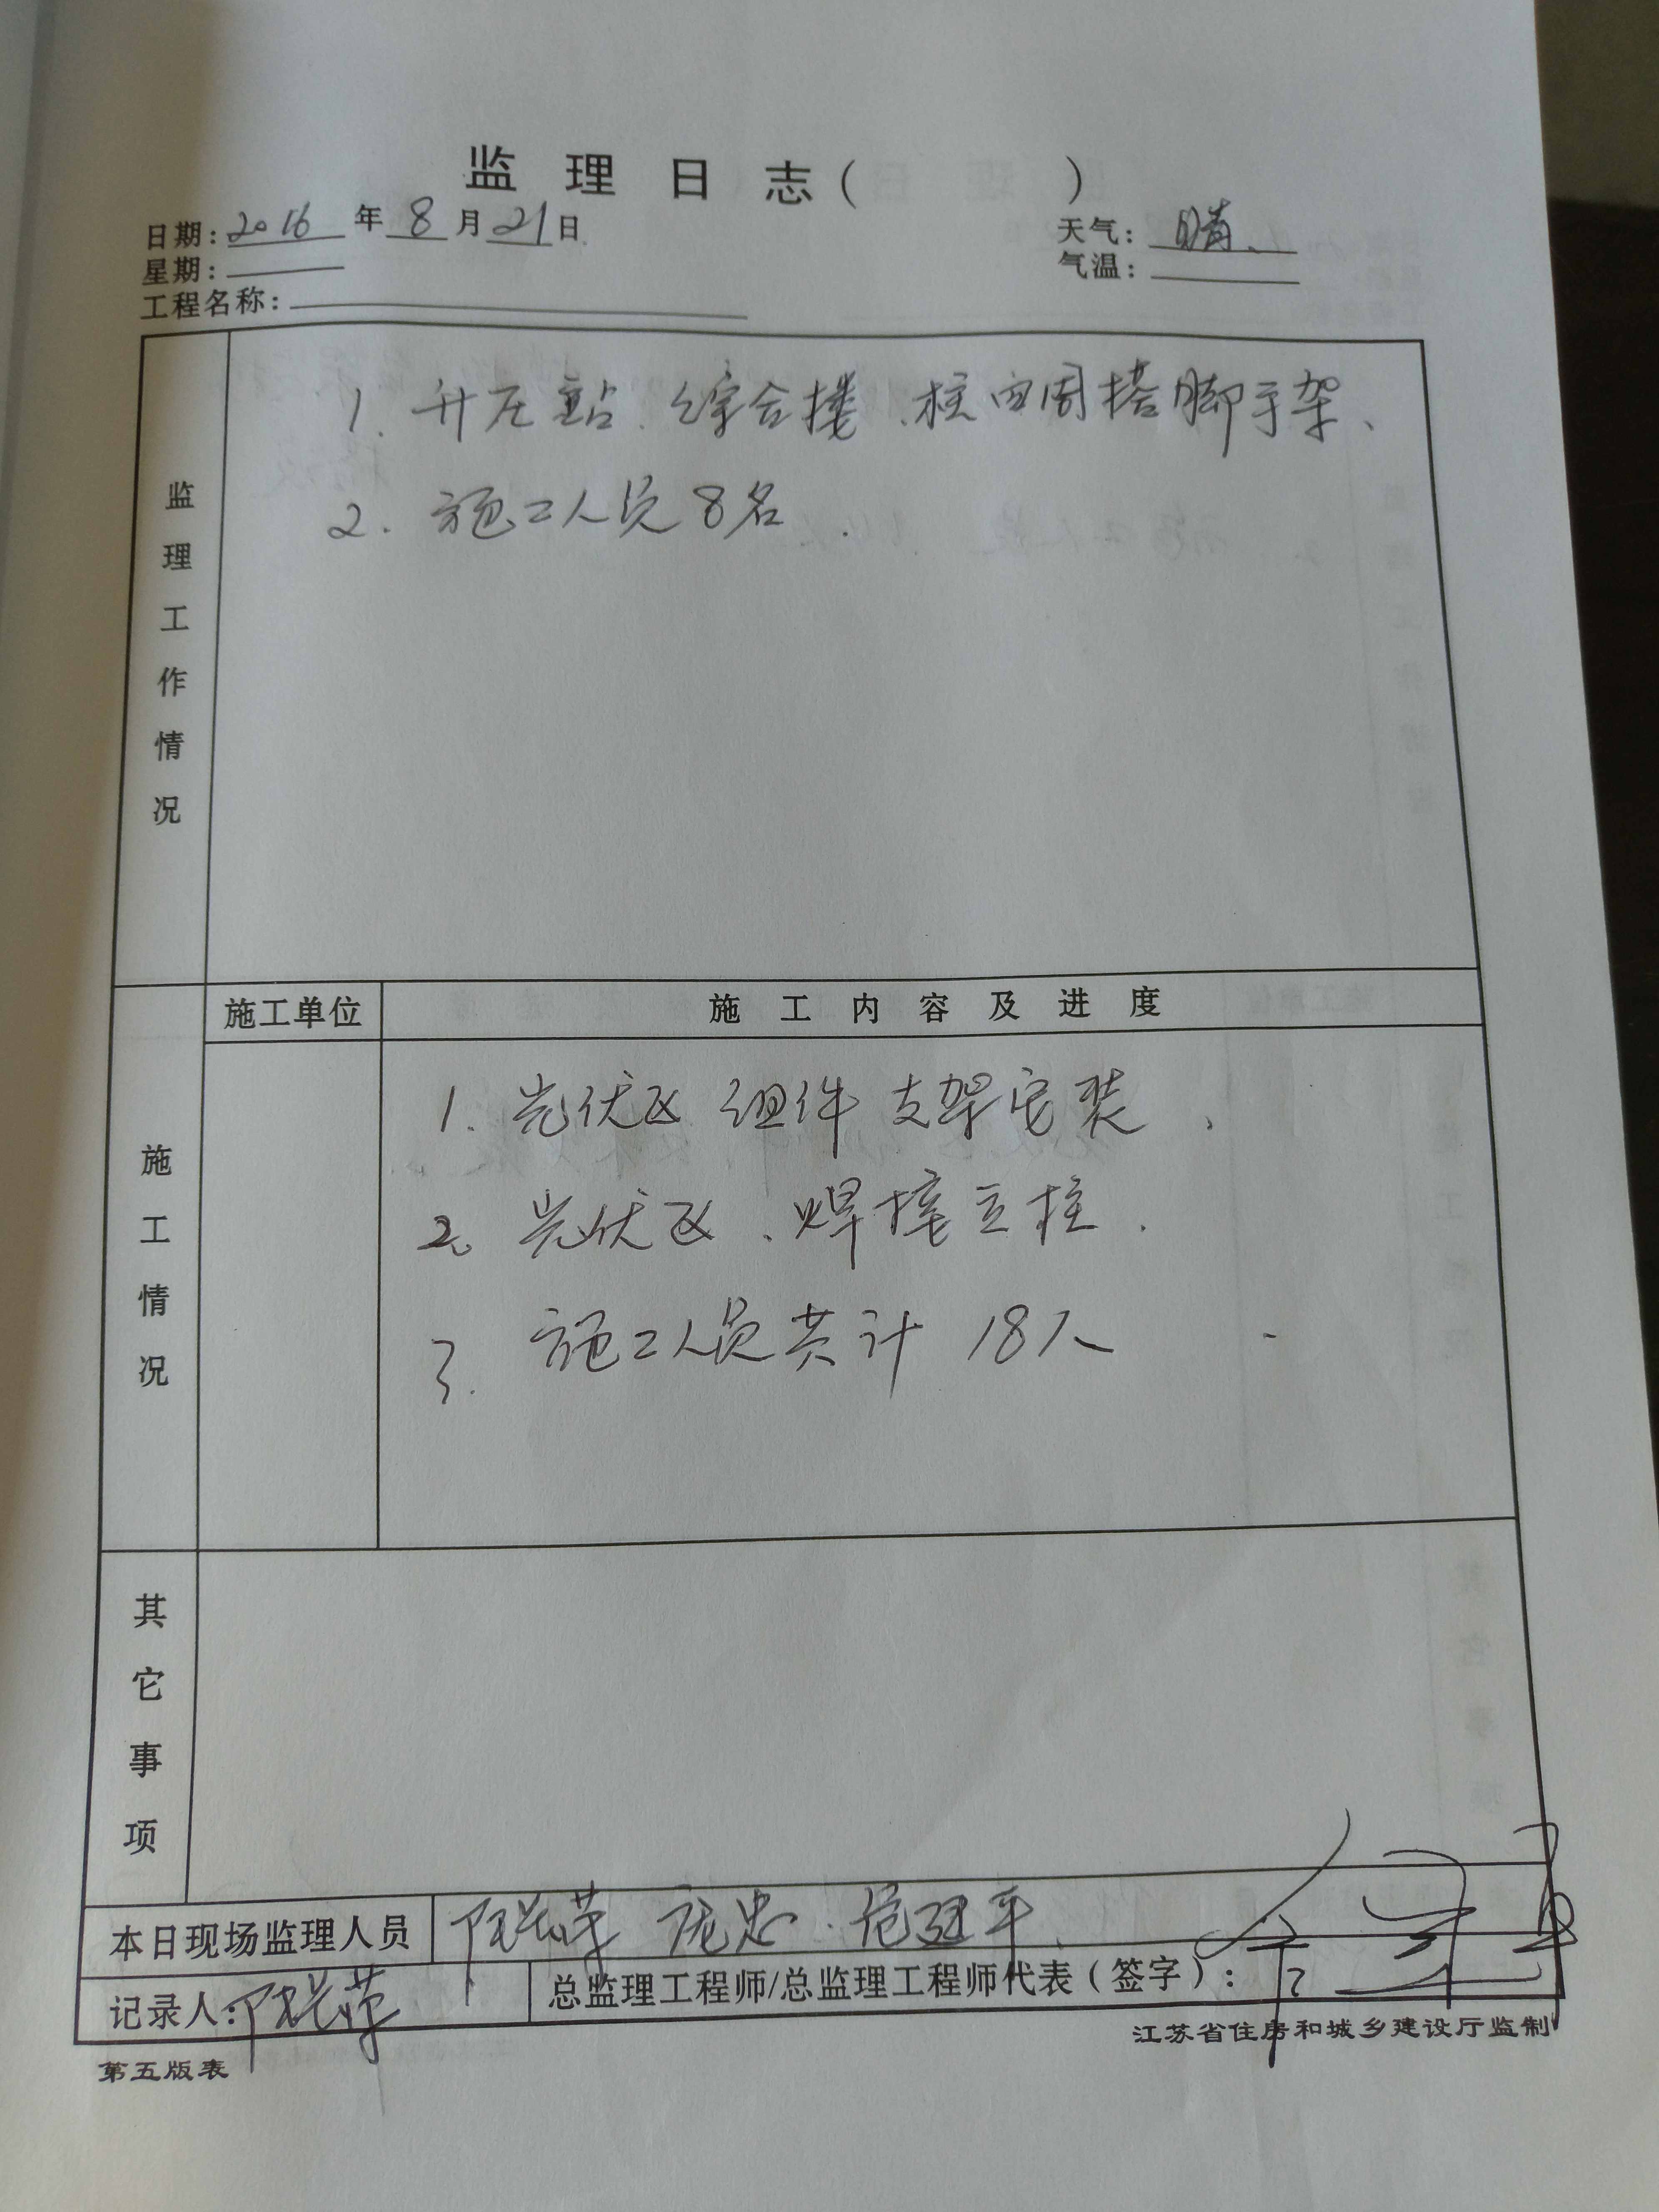 监理日志( )
日期:2016年8月21日 天气:晴、
星期: 气温:
工程名称:
监理工作情况
1. 升压站、综合楼、柱四周搭脚手架、
2. 施工人员8名.
施工单位 施工内容及进度
施工情况
1. 光伏区 组件 支架安装、
2. 光伏区、焊接立柱.
3. 施工人员共计 18人
其它事项
本日现场监理人员
记录人: 总监理工程师/总监理工程师代表(签字):
江苏省住房和城乡建设厅监制
第五版表